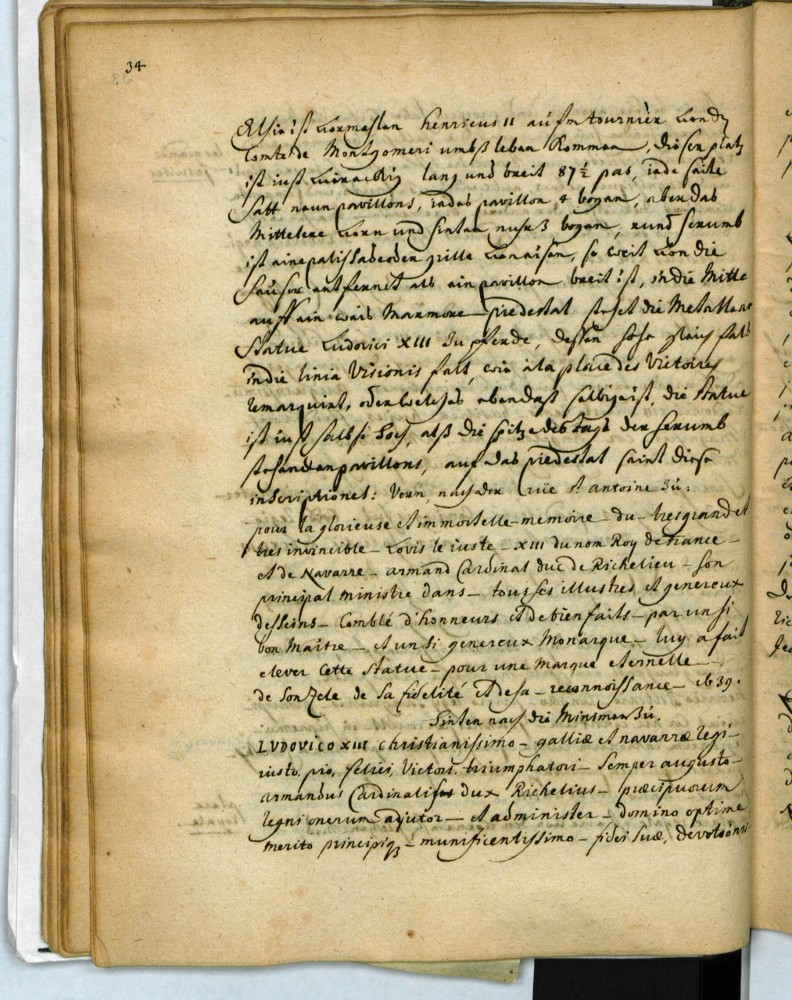 34
Alhie ist vormahlen Henricus II aufm tournier von dem
Comte de Montgomeri umbß leben kommen, dieser platz
ist just vireckig lang und breit 87½ pas, jede seite
hatt neun pavillons, jedes pavillon 4 bogen, aber das
Mittelere vorn und hinten nuhr 3 bogen, rund herumb
ist eine palissade oder grille von eisen, so weit von die
häuser entfernet als ein pavillon breit ist, in die Mitte
auff ein weis Marmore piedestal stehet die Metallene
Statue Ludovici XIII zu pferde, dessen höhe gleich fals
in die linia Visionis falt, wie à la place des Victoires
remarquirt, oder welches eben daß selbige ist, die statue
ist just selbst hoch, alß die spitze des tags der herumb
stehenden pavillons, auf das piedestal seint diese
inscriptiones: Vorn, nach der rüe st antoine zu:
pour la glorieuse et immortelle - memoire - du - tres grand et
tres invincible - Lovis le iuste - XIII du nom Roy de France -
et de Navarre - armand Cardinal duc de Richelieu - son
principal ministre dans - tous ses illustres et genereux
desseins - Comblé d'honneurs et de bienfaits - par un si
bon Maitre - et un si genereux Monarque - luy a fait
elever Cette Statue - pour une marque eternelle -
de son Zele de sa fidelité et de sa - reconnoissance - 1639.
Hinten nach die Minimer zu.
LVDOVICO XIII christianissimo - galliæ et navarræ regi -
iusto, pio, felici, Victori, triumphatori - Semper augusto -
armandus Cardinalis dux Richelius - præcipuorum
regni onerum adjutor - et administer - domino optime
merito principiq3 - munificentissimo - fidei suæ, devotionis